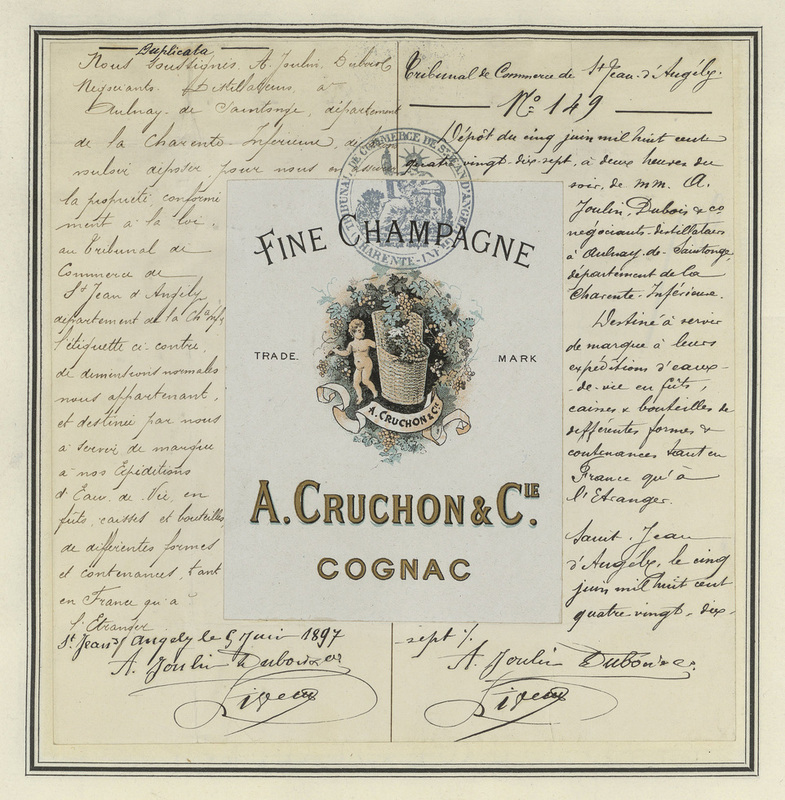 Duplicata
Nous soussignés A. Joulin, Dubois &
Negociants Distillateurs, à
Aulnay de Saintonge, département
de la Charente-Inférieure, de
vouloir déposer, pour nous en assurer
la propriété, conformé
ment à la loi
au Tribunal de
Commerce de
St Jean d'Angély,
département de la Chte Infre
l'étiquette ci-contre,
de dimensions normales
nous appartenant,
et destinée par nous
à servir de marque
à nos Expéditions
d'Eau, de, Vie, en
fûts, caisses et bouteilles
de différentes formes
et contenances, tant
en France qu'à
l'Etranger
St Jean d'Angely le 5 Juin 1897
A. Joulin Dubois & Co
Tribunal de Commerce de St Jean-d'Angély.
No 149
Dépôt du cinq juin mil huit cent
quatre vingt-dix-sept, à deux heures du
soir, de mm. A.
Joulin, Dubois & Co
négociants-distillateurs
à Aulnay-de-Saintonge,
département de la
Charente-Inférieure.
Destiné à servir
de marque à leurs
expéditions d'eaux-
-de-vie en fûts,
caisses & bouteilles de
différentes formes &
contenances tant en
France qu'à
l'Etranger.
Saint, Jean
d'Angély, le cinq
juin mil huit cent
quatre vingt-dix-
sept %.
A. Joulin Dubois & Co.
TRIBUNAL DE COMMERCE DE ST JEAN D'ANGÉLY
CHARENTE-INFRE
FINE CHAMPAGNE
TRADE. MARK
A. CRUCHON & CIE
A. CRUCHON & CIE.
COGNAC